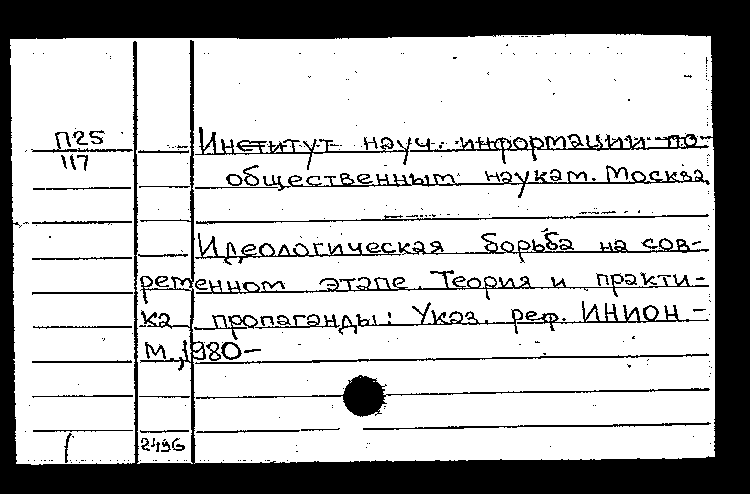 П25
117
Институт науч. информации по
общественным наукам. Москва.
Идеологическая борьба на сов-
ременном этапе. Теория и практи-
ка пропаганды: Указ. реф. ИНИОН.-
М., 1980-
2496